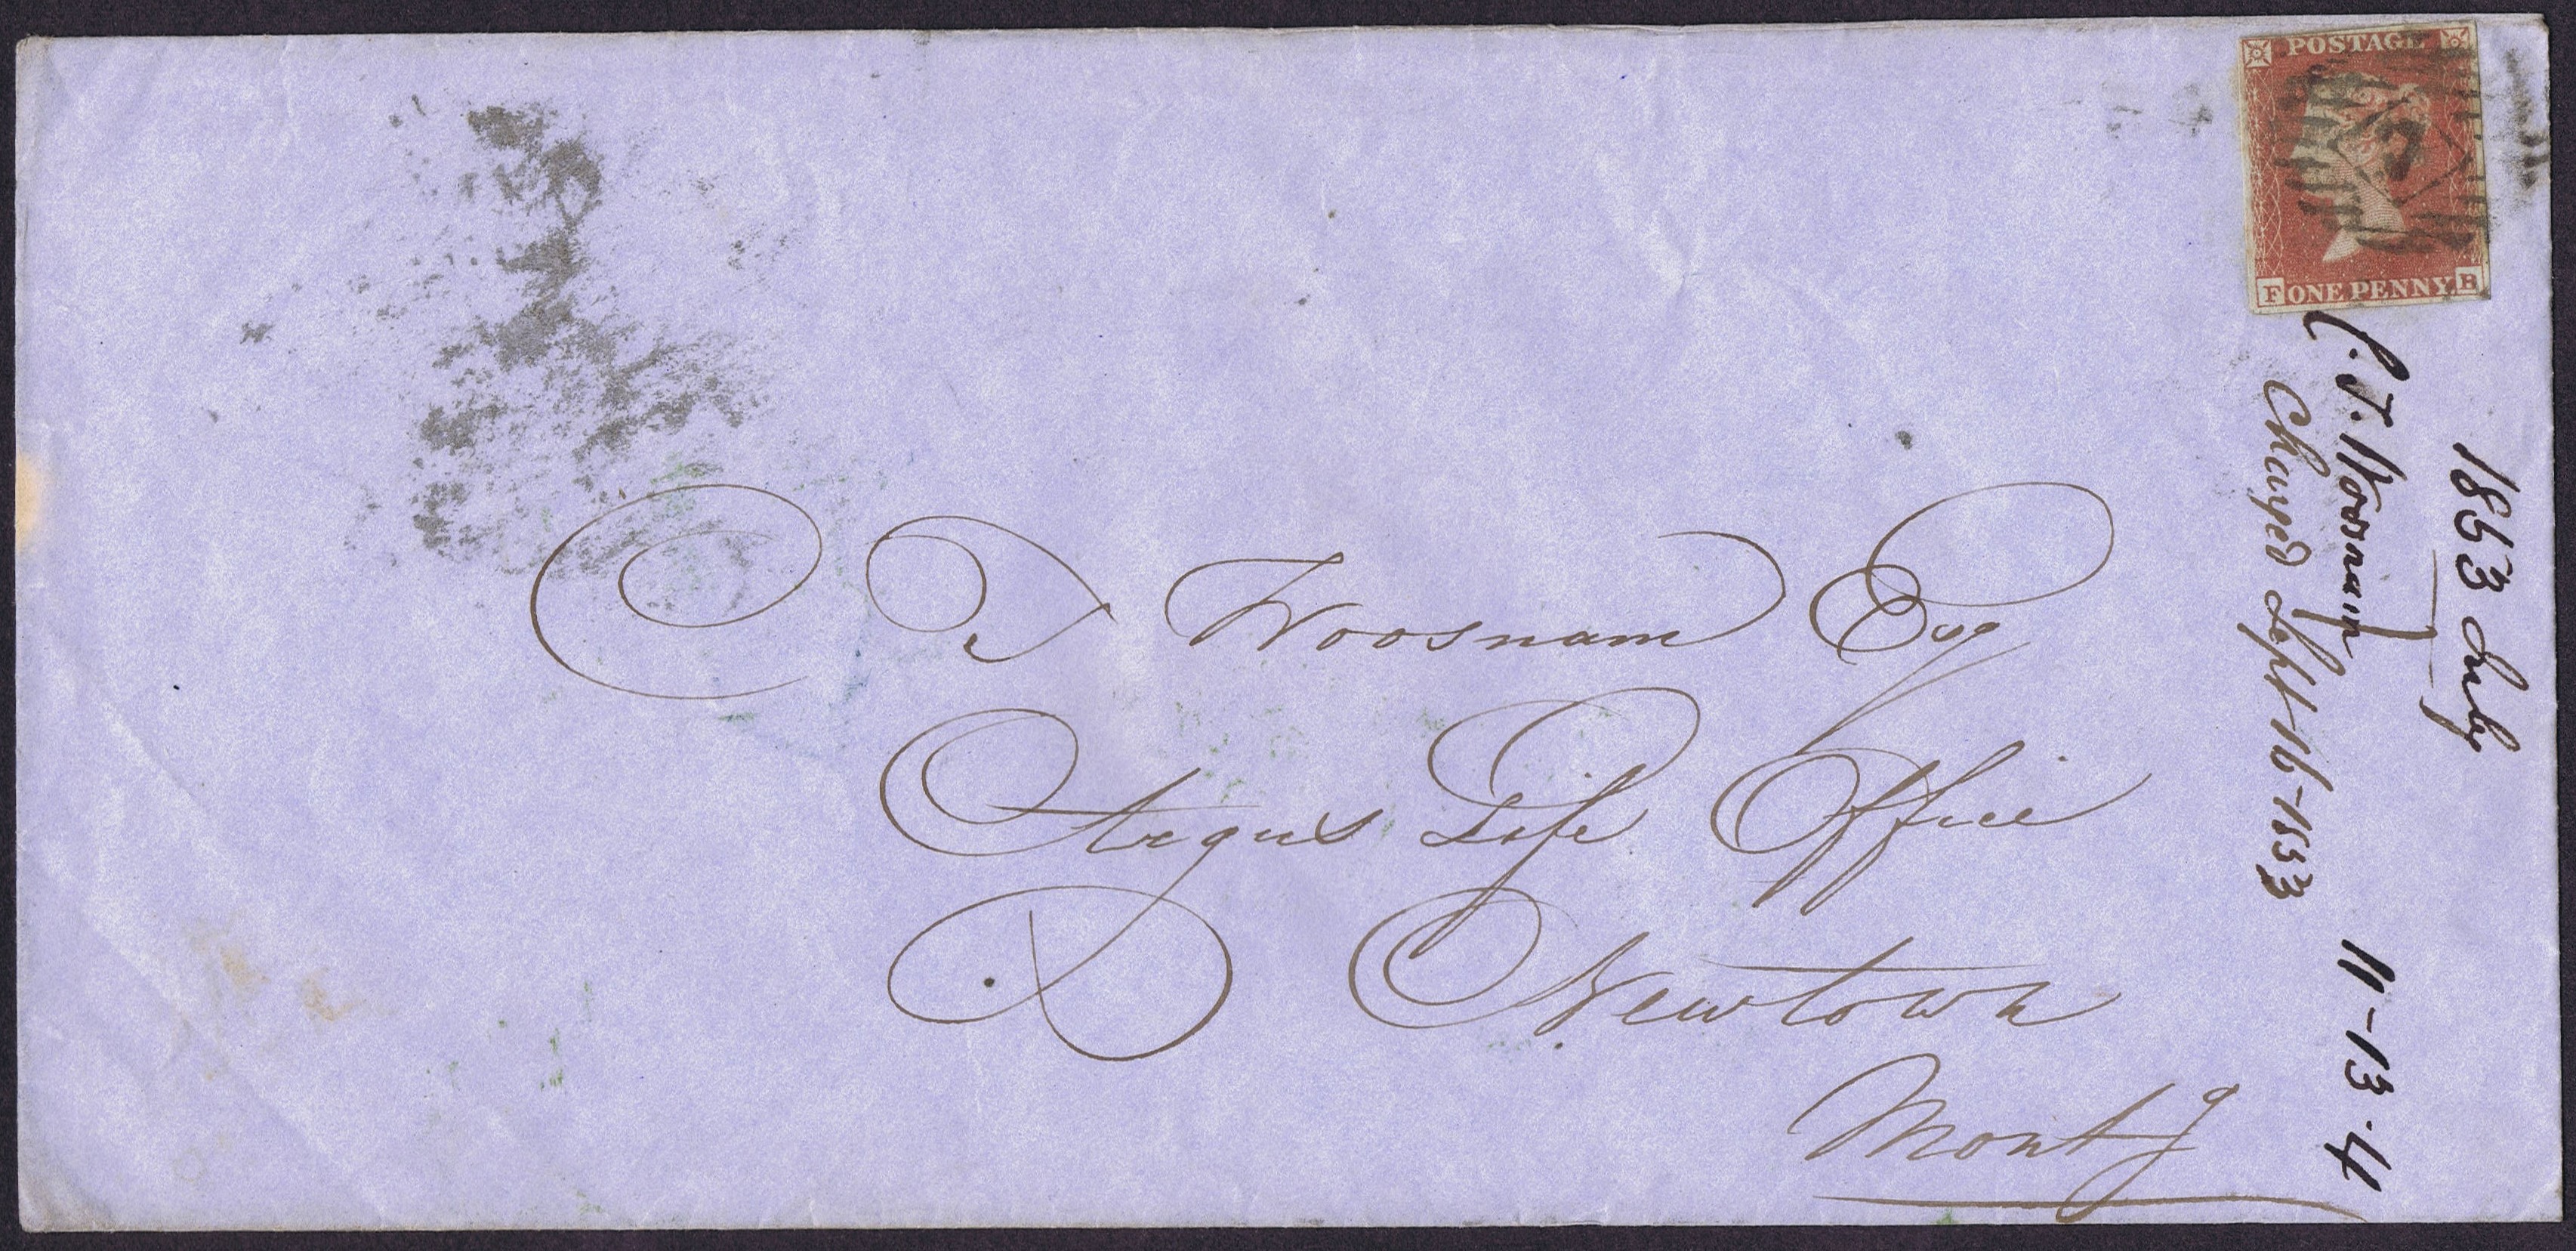 POSTAGE
F ONE PENNY B
J Woosnam Esq
Argus Life Office
Newtown
Montg
1853 July
C. J. Woosnam
Charged Sept 16-1853
11-13-4